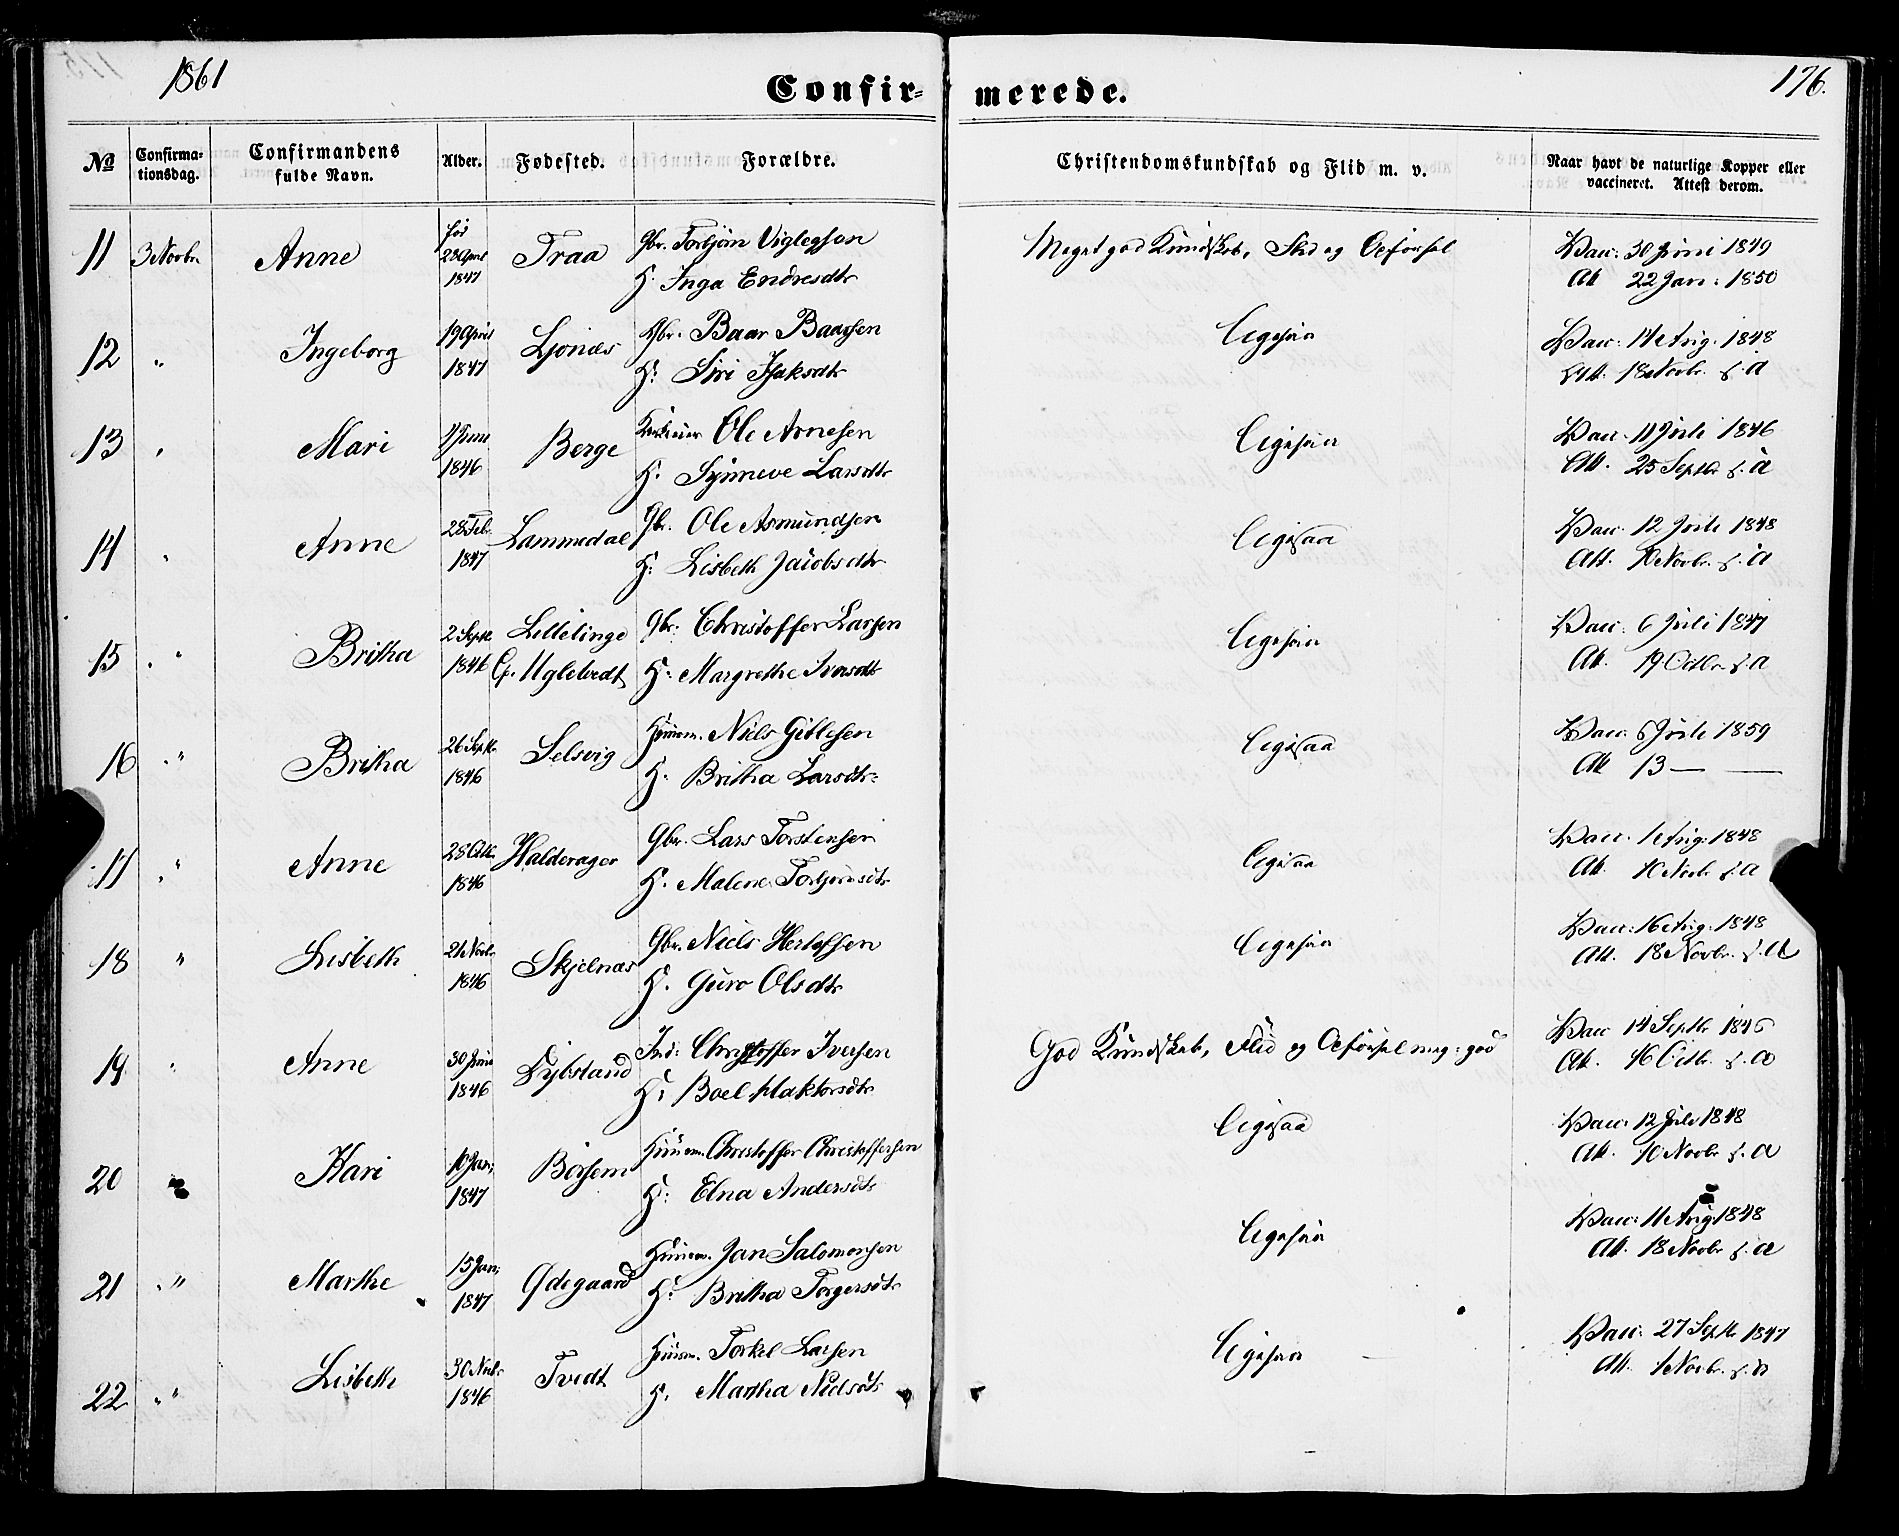 1861
Confirmerede.
176.
No
Confirmationsdag.
Confirmandens fulde Navn.
Alder.
Fødested.
Forældre.
Christendomskundskab og Flid m. v.
Naar havt de naturlige Kopper eller vaccineret. Attest derom.
11 3 Novbr Anne 23 April 1847 Traa Gbr. Torbjörn Viglegsen
H. Inga Endresdtr
Meget god Kundskab, Flid og Opförsel
Vacc: 30 Juni 1849
Att 22 Jan: 1850
12 " Ingeborg 19 April 1847 Ljones Gbr. Baar Baarsen
H: Siri Isaksdtr
Ligesaa
Vacc: 14 Aug: 1848
Att. 18 Novbr. s. a
13 " Mari 1846 Berge Ole Arnesen
H. Synneve Larsdtr
Ligesaa
Vacc: 11 Juli 1846
Att. 25 Septbr s. a
14 " Anne 28 Feb. 1847 Lammedal Gbr. Ole Asmundsen
H: Lisbeth Jacobsdtr
Ligesaa
Vacc: 12 Juli 1848
Att. 10 Novbr. s. a
15 " Britha 2 Septbr 1846 Lillelinge Gbr: Christoffer Larsen
Pl. Ugletvedt H: Margrethe Iversdtr
Ligesaa
Vacc: 6 Juli 1847
Att. 19 Octbr s. a
16 " Britha 26 Septbr. 1846 Selsvig Huusm. Niels Gitlesen
H. Britha Larsdtr.
Ligesaa
Vacc: 6 Juli 1859
Att 13 — —
17 " Anne 28 Octbr. 1846 Halderager Gbr. Lars Torstensen
H. Malene Torbjörnsdtr
Ligesaa
Vacc. 1 Aug: 1848
Att. 10 Novbr s. a
18 " Lisbeth 21 Novbr. 1846 Skjelnæs Gbr. Niels Herlofsen
H. Guro Olsdtr
Ligesaa
Vacc: 16 Aug: 1848
Att. 18 Novbr. s. a
19 " Anne 30 Juni 1846 Dybsland Ind: Christoffer Iversen
H: Boel Haktorsdtr
God Kundskab, Flid og Opförsel meg: god
Vacc 14 Septbr 1846
Att. 16 Octbr. s. a
20 " Kari 10 Jan: 1847 Börsem Huusm. Christoffer Christoffersen
H: Elna Andersdtr
Ligesaa
Vacc: 12 Juli 1848
Att. 10 Novbr s. a
21 " Marthe 15 Jan: 1847 Ødegaard Huusm. Jan Salomonsen
H: Britha Torgersdtr
Ligesaa
Vacc: 11 Aug: 1848
Att. 18 Novbr s. a
22 " Lisbeth 30 Novbr 1846 Tvedt Huusm. Torkel Larsen
H. Martha Nielsdtr
Ligesaa
Vacc: 27 Septbr 1847
Att. 1 Novbr. s. a